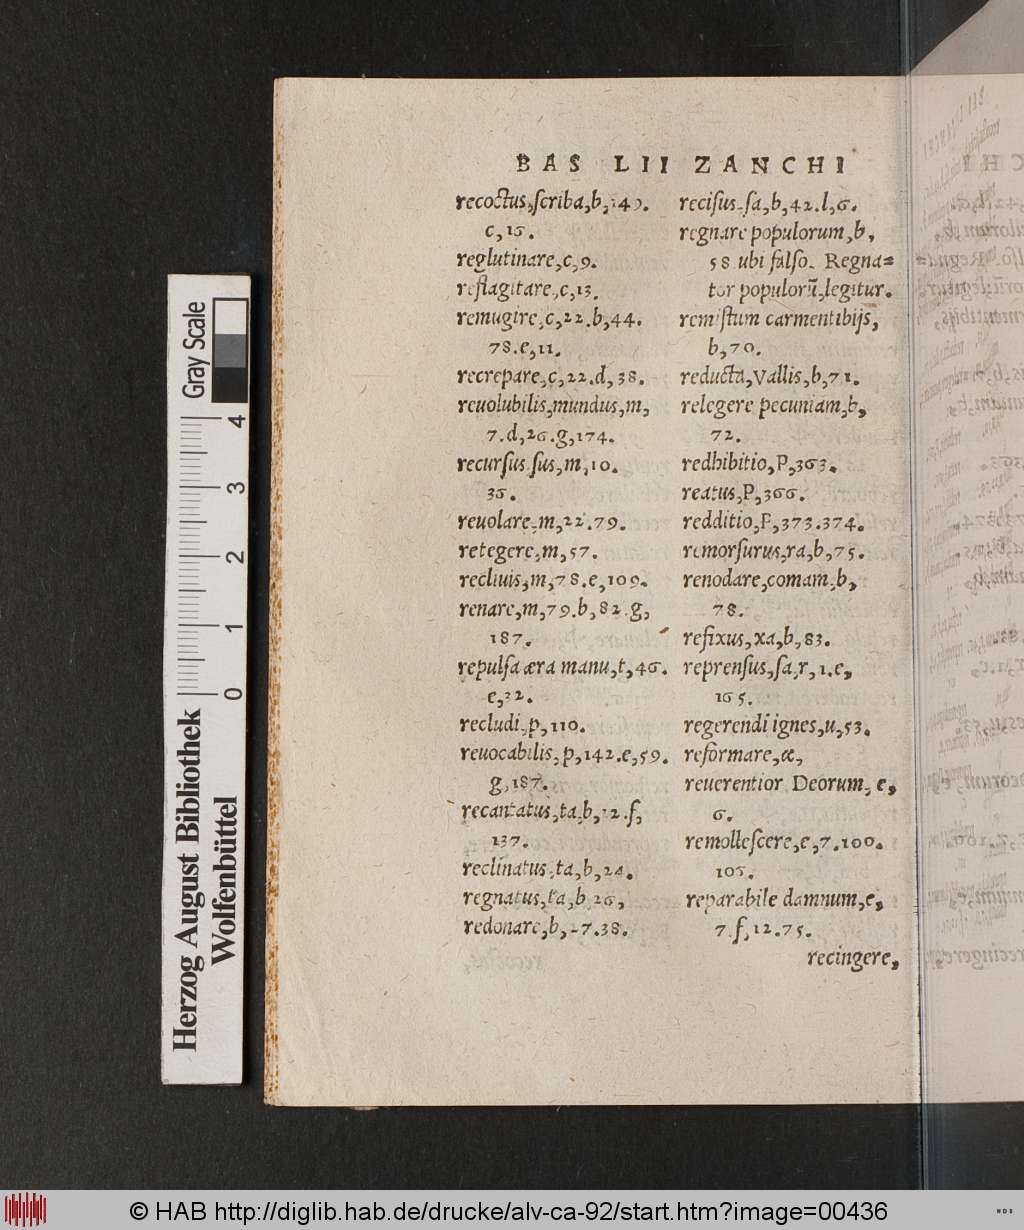 BAS LII ZANCHI
recoctus, ſcriba, b, 140.
c, 15.
reglutinare, c, 9.
reflagitare, c, 13.
remugire, c, 22. b, 44.
78. e, 11.
recrepare, c, 22. d, 38.
reuolubilis, mundus, m,
7. d, 26. g, 174.
recurſus ſus, m, 10.
36.
reuolare, m, 22. 79.
retegere, m, 57.
recliuis, m, 78. e, 109.
renare, m, 79. b, 82. g,
187.
repulſa æra manu, t, 46.
e, 32.
recludi, p, 110.
reuocabilis, p, 142. e, 59.
g, 187.
recantatus, ta, b, 12. f,
137.
reclinatus, ta, b, 24.
regnatus, ta, b 26,
redonare, b, 27. 38.
reciſus ſa, b, 42. l, 6.
regnare populorum, b,
58 ubi falſo. Regna=
tor populorũ, legitur.
remiſtum carmentibijs,
b, 70.
reducta, Vallis, b, 71.
relegere pecuniam, b,
72.
redhibitio, P, 363.
reatus, P, 366.
redditio, P, 373. 374.
remorſurus, ra, b, 75.
renodare, comam, b,
78.
refixus, xa, b, 83.
reprenſus, ſa, r, 1. e,
165.
regerendi ignes, u, 53.
reformare, æ,
reuerentior Deorum, e,
6.
remolleſcere, e, 7. 100.
106.
reparabile damnum, e,
7. f, 12. 75.
recingere,
Gray Scale
4
3
2
1
0
Herzog August Bibliothek
Wolfenbüttel
© HAB http://diglib.hab.de/drucke/alv-ca-92/start.htm?image=00436